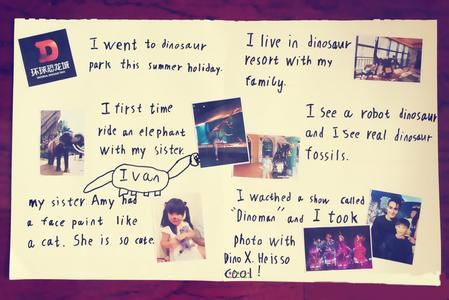 环球恐龙城
I went to dinosaur
park this summer holiday.
I first time
ride an elephant
with my sister.
Ivan
my sister Amy had
a face paint like
a cat. She is so cute.
I live in dinosaur
resort with my
family.
I see a robot dinosaur
and I see real dinosaur
fossils.
I wacthed a show called
"Dinoman" and I took
photo with
Dino X. He is so
cool!